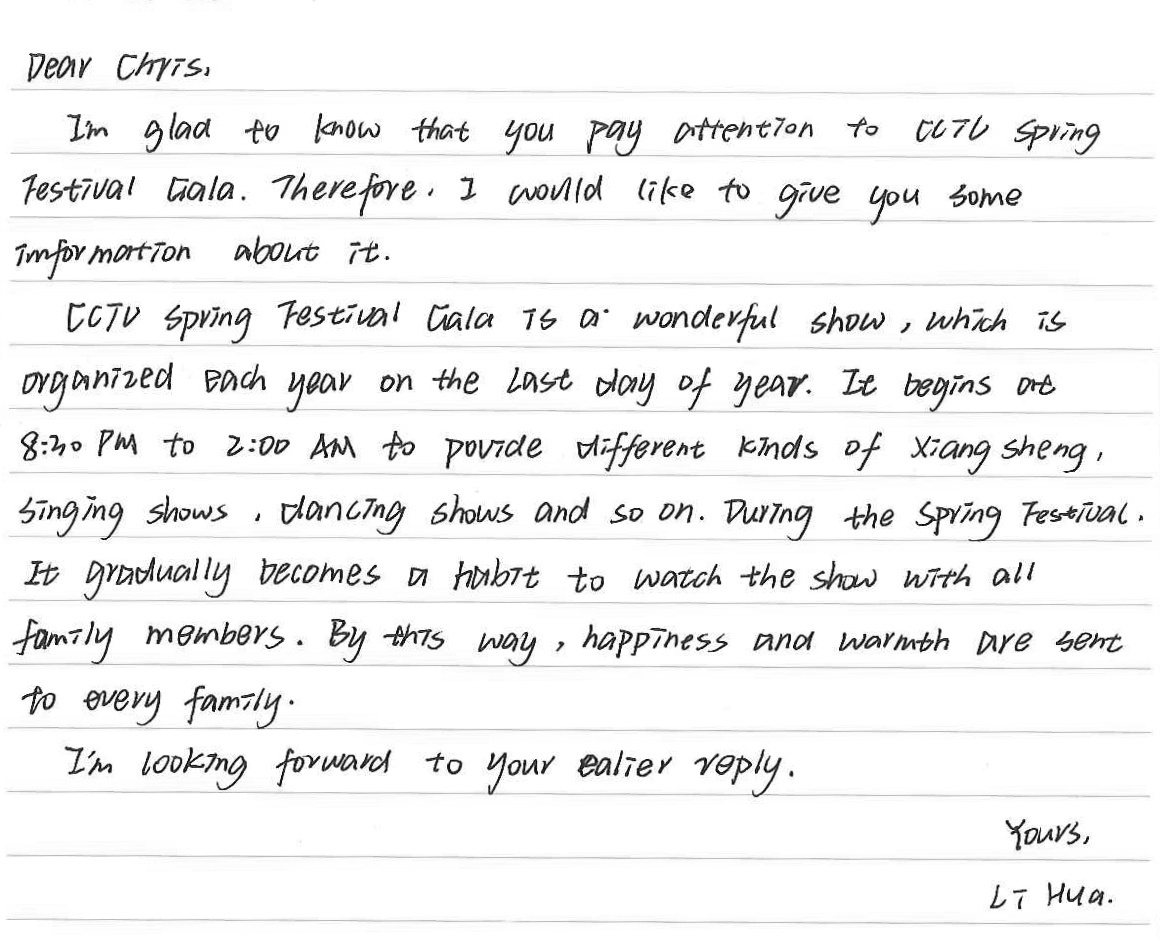 Dear Chris,
I'm glad to know that you pay attention to CCTV Spring
Festival Gala. Therefore, I would like to give you some
imformation about it.
CCTV Spring Festival Gala is a wonderful show, which is
organized each year on the last day of year. It begins at
8:30 PM to 2:00 AM to povide different kinds of Xiang sheng,
singing shows, dancing shows and so on. During the Spring Festival.
It gradually becomes a habit to watch the show with all
family members. By this way, happiness and warmth are sent
to every family.
I'm looking forward to your ealier reply.
Yours,
Li Hua.